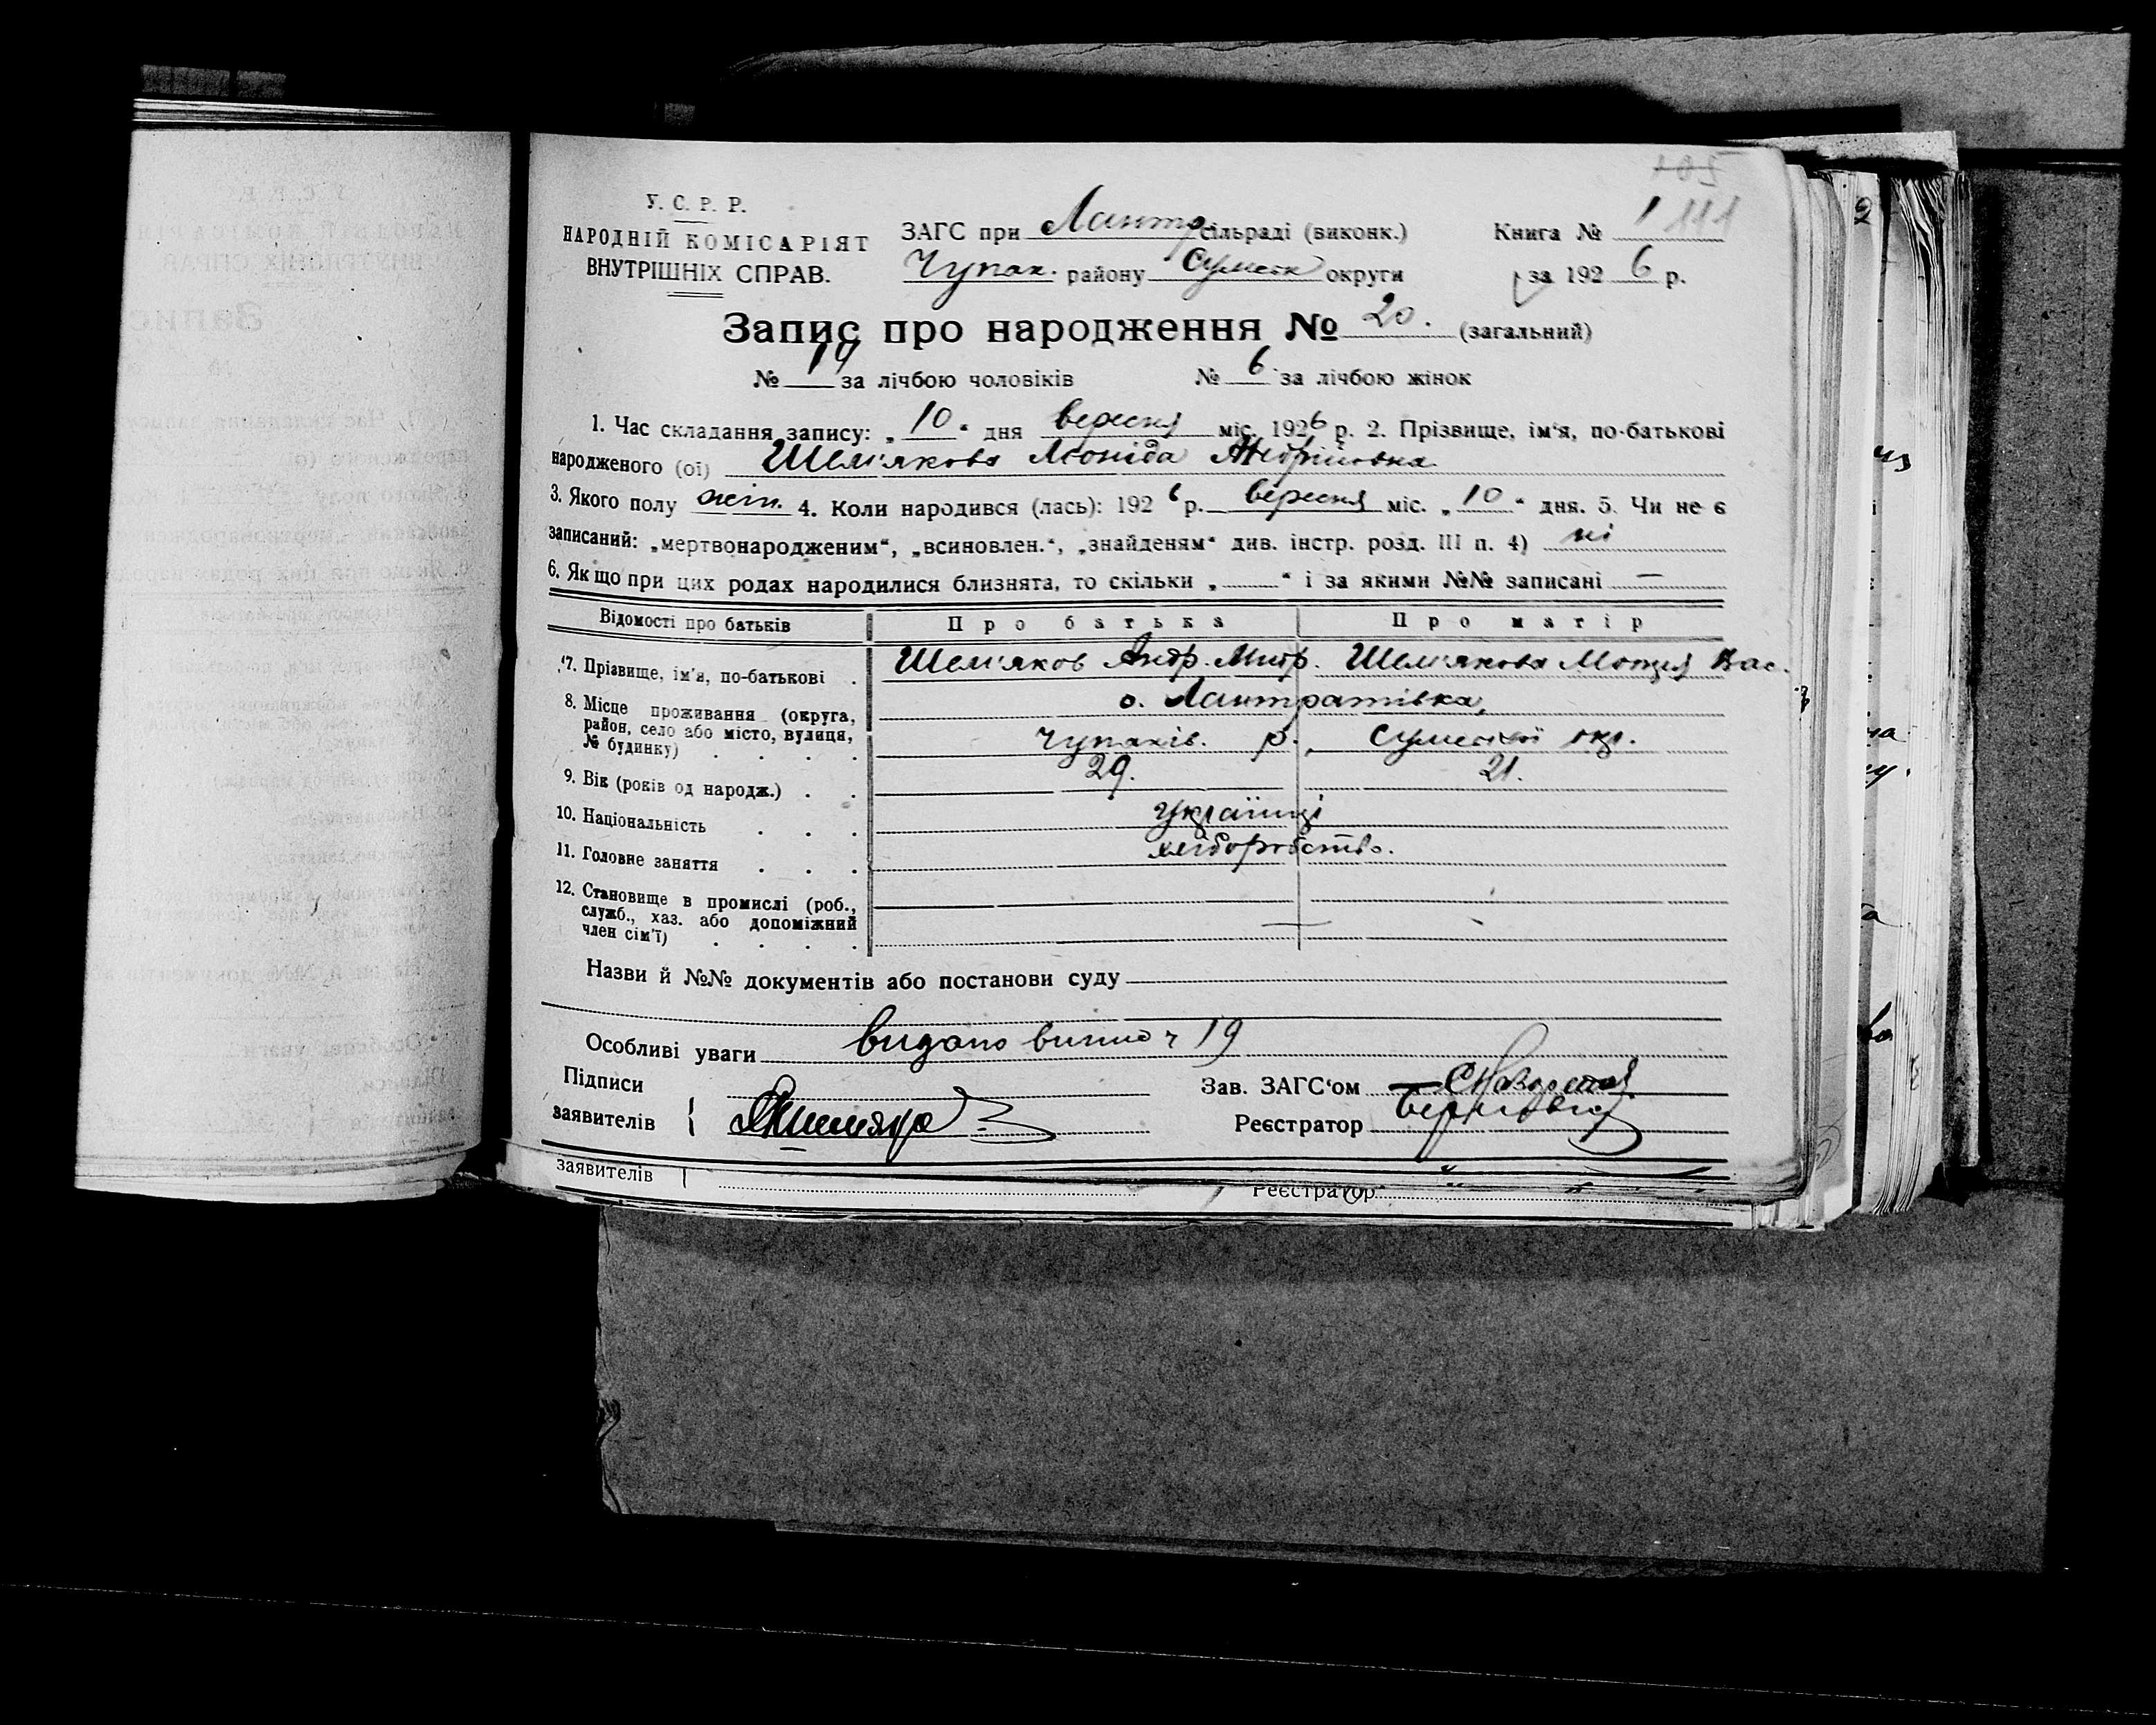 У. С. Р. Р.
НАРОДНІЙ КОМІСАРІЯТ
ВНУТРІШНІХ СПРАВ.
ЗАГС при Лантр сільраді (виконк.)
Чупах. району Сумськ округи
Книга № 1 111
за 1926 р.
Запис про народження № 20. (загальний)
№ 14 за лічбою чоловіків № 6 за лічбою жінок
1. Час складання запису: „10“ дня вересня міс. 1926 р. 2. Прізвище, ім‘я, по-батькові
народженого (ої) Шем‘якова Леоніда Андріївна
3. Якого полу жін. 4. Коли народився (лась): 1926 р. вересня міс. „10“ дня. 5. Чи не є
записаний: „мертвонародженим“, „всиновлен.“, „знайденям“ див. інстр. розд. III п. 4) ні
6. Якщо при цих родах народилися близнята, то скільки „ “ і за якими №№ записані —
Відомості про батьків Про батька Про матір
7. Прізвище, ім‘я, по-батькові . Шем‘яков Андр. Митр. Шем‘якова Мотря Вас.
8. Місце проживання (округа,
район, село або місто, вулиця,
№ будинку) . . . .
с. Лантратівка,
Чупахів. р., Сумської окр.
9. Вік (років од народж.) . . 29. 21.
10. Національність . . . українці
11. Головне заняття . . . хліборобство.
12. Становище в промислі (роб.,
служб., хаз. або допоміжний
член сім‘ї) . . . . —
Назви й №№ документів або постанови суду
Особливі уваги видано випис ч 19
Підписи
заявителів {
Зав. ЗАГС‘ом
Реєстратор
заявителів
Реєстратор